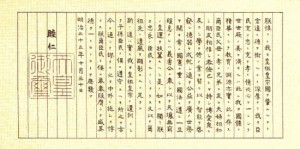 朕惟フニ我カ皇祖皇宗國
宏遠ニ德ヲ樹ツルコト深厚ナリ我カ臣
民克ク忠ニ克ク孝ニ億兆心ヲ一ニシテ
世世厥ノ美ヲ濟セルハ此レ我カ國體ノ
精華ニシテ敎育ノ淵源亦實ニ此ニ存ス
爾臣民父母ニ孝ニ兄弟ニ友ニ夫婦相和シ
朋友相信シ恭儉己レヲ持シ博愛衆ニ
及ホシ學ヲ修メ業ヲ習ヒ以テ智能ヲ啓
發シ德器ヲ成就シ進テ公益ヲ廣メ世務
ヲ開キ常ニ國憲ヲ重シ國法ニ遵ヒ一旦
緩急アレハ義勇公ニ奉シ以テ天壤無窮
ノ皇運ヲ扶翼スヘシ是ノ如キハ獨リ朕
カ忠良ノ臣民タルノミナラス又以テ爾
祖先ノ遺風ヲ顯彰スルニ足ラン
斯ノ道ハ實ニ我カ皇祖皇宗ノ遺訓ニシ
テ子孫臣民ノ俱ニ遵守スヘキ所之ヲ古
今ニ通シテ謬ラス之ヲ中外ニ施シテ悖
ラス朕爾臣民ト俱ニ拳々服膺シテ咸其
德ヲ一ニセンコトヲ庶幾フ
明治二十三年十月三十日
睦仁
天皇
御璽